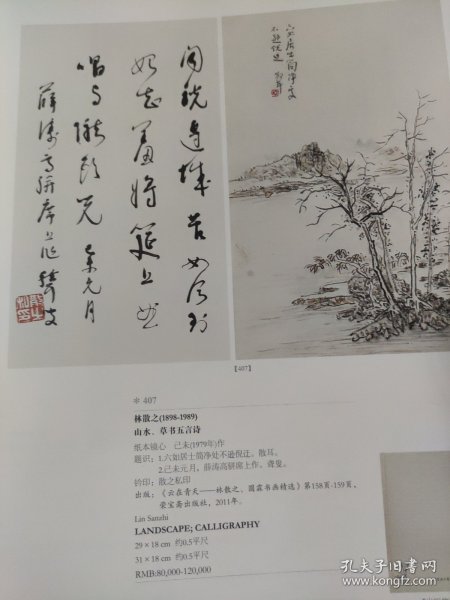 闻说边城苦如今到
始知羞将筵上曲
唱与陇头儿 己未元月
薛涛高骈席上作 聋叟
六如居士简净处
不逊倪迂 散耳
【407】
＊ 407
林散之(1898-1989)
山水、草书五言诗
纸本镜心 己未(1979年)作
题识：1.六如居士简净处不逊倪迂。散耳。
2.己未元月，薛涛高骈席上作。聋叟。
钤印：散之私印
出版：《云在青天——林散之、圆霖书画精选》第158页-159页，
荣宝斋出版社，2011年。
Lin Sanzhi
LANDSCAPE; CALLIGRAPHY
29 × 18 cm 约0.5平尺
31 × 18 cm 约0.5平尺
RMB:80,000-120,000
孔夫子旧书网
www.kongfz.com